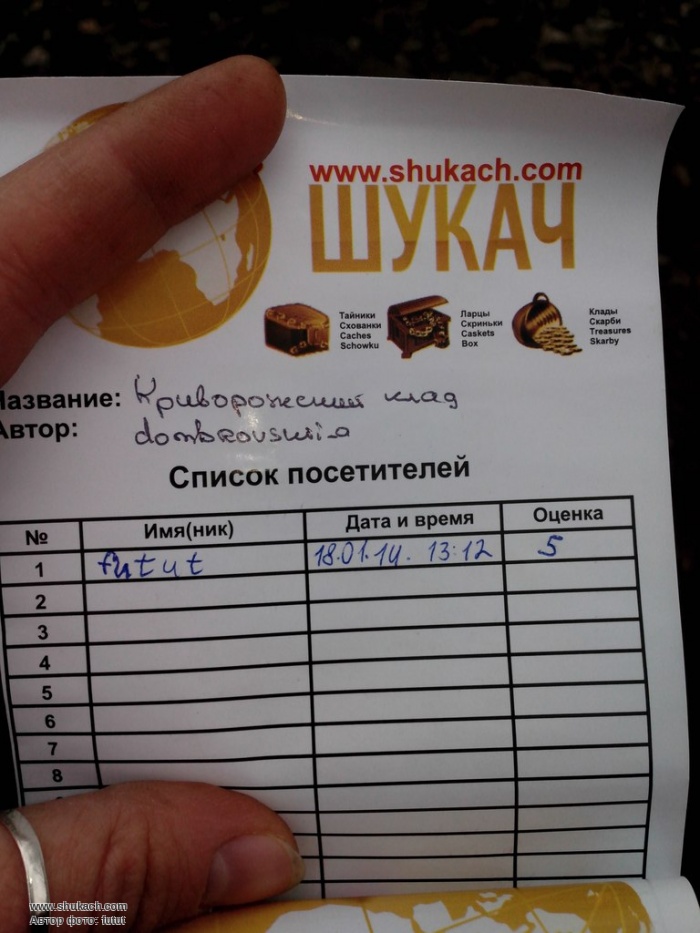 www.shukach.com
ШУКАЧ
Тайники
Схованки
Caches
Schowku
Ларцы
Скриньки
Caskets
Box
Клады
Скарби
Treasures
Skarby
Название: Криворожский клад
Автор: dombrovskiia
Список посетителей
№ Имя(ник) Дата и время Оценка
1 futut 18.01.14. 13:12 5
2
3
4
5
6
7
8
www.shukach.com
Автор фото: futut